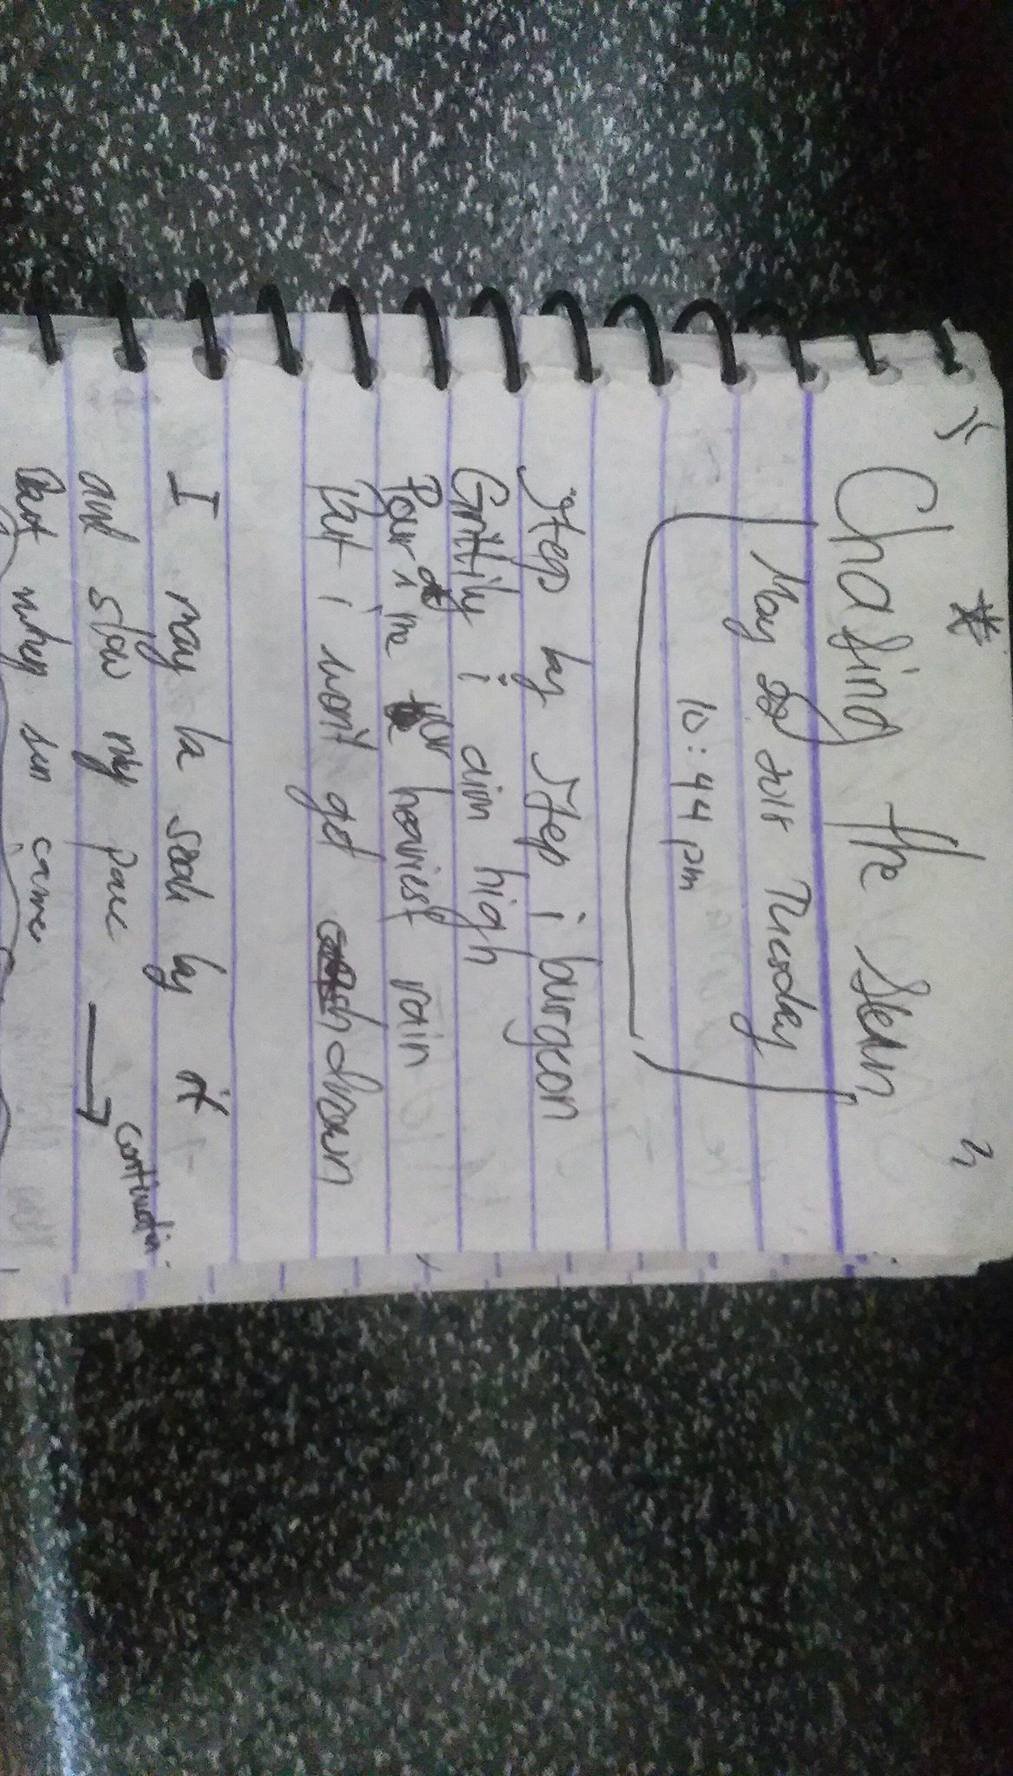 Chasing the Sun
May 2018 Tuesday
10:44 pm
Step by Step i burgeon
Gritily i aim high
Pour in me ur heaviest rain
But i won't get drown
I may be soak by it
and slow my pace
continuation
But when sun came